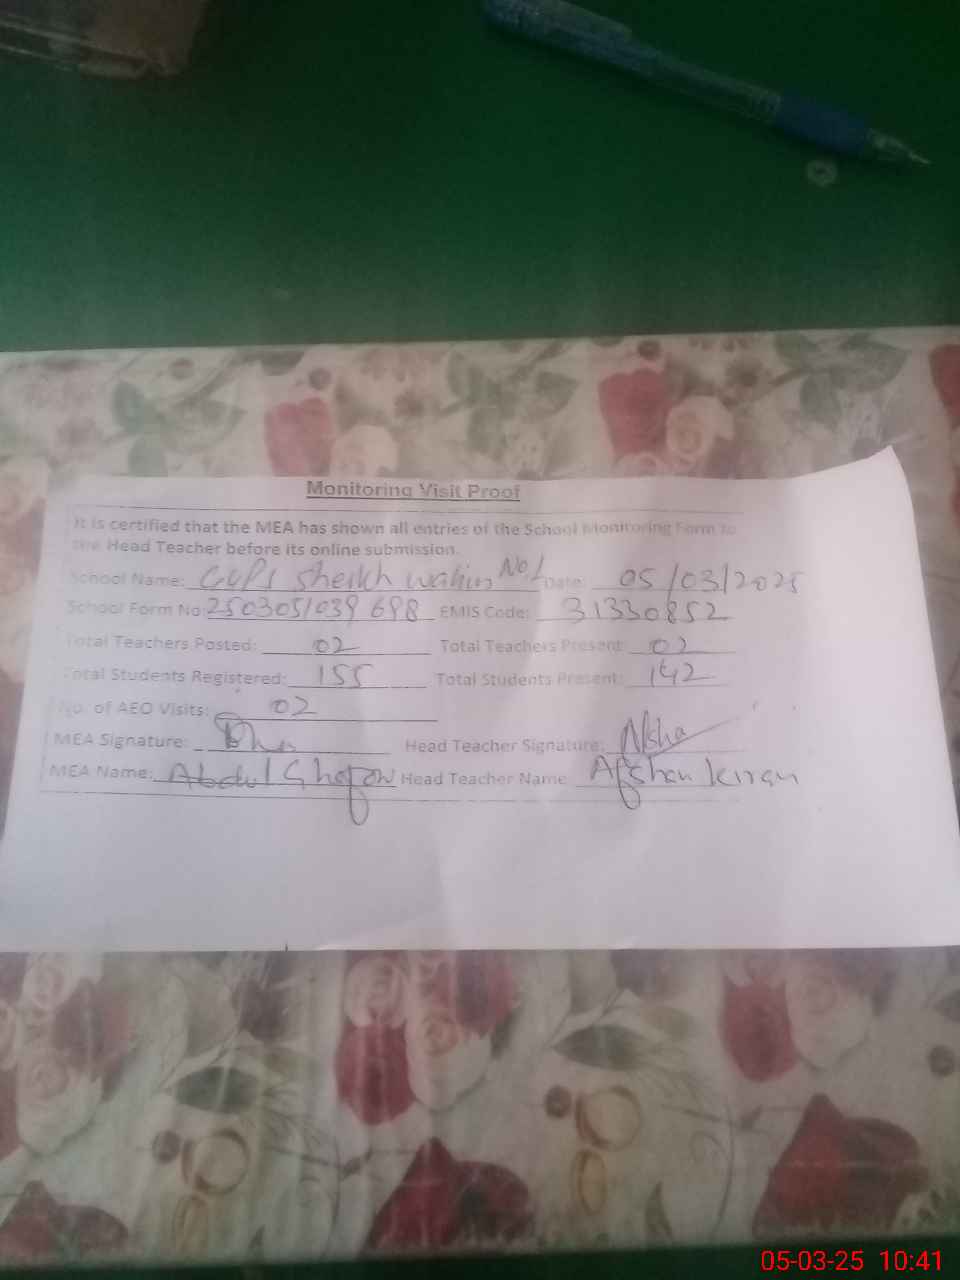 Monitoring Visit Proof
It is certified that the MEA has shown all entries of the School Monitoring Form to
the Head Teacher before its online submission.
School Name: Sheikh No.1 Date: 05/03/2025
School Form No: 250305/039 698 EMIS Code: 31330852
Total Teachers Posted: 02 Total Teachers Present: 02
Total Students Registered: 155 Total Students Present: 142
No. of AEO Visits: 02
MEA Signature: Head Teacher Signature: Afsha
MEA Name: Abdul Ghafoor Head Teacher Name: Afshan Kiran
05-03-25 10:41